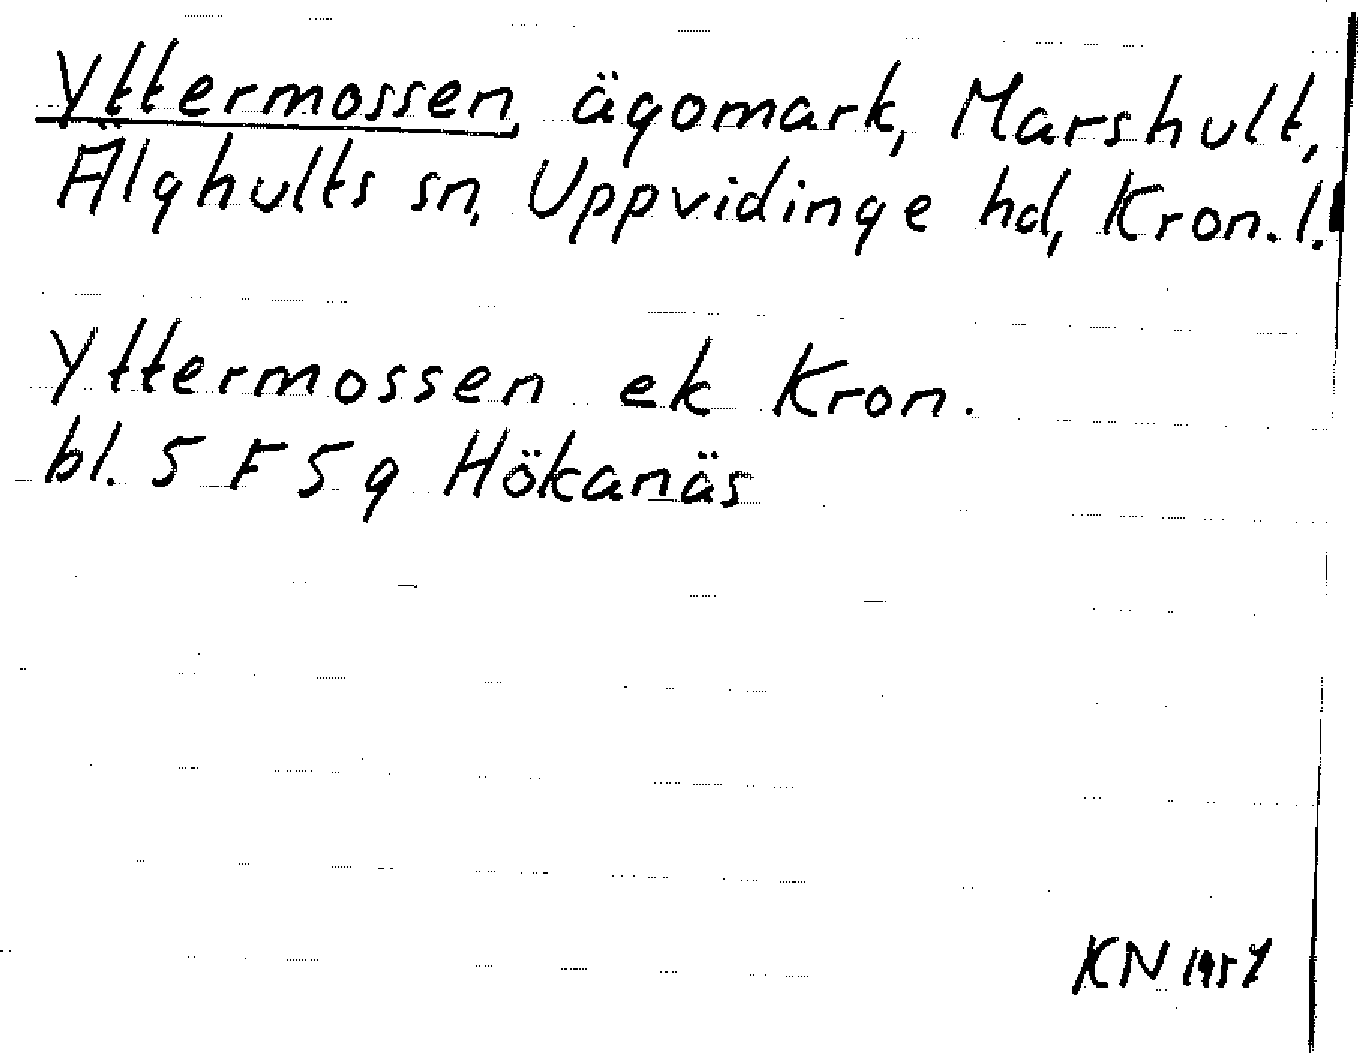 Yttermossen, ägomark, Marshult,
Älghults sn, Uppvidinge hd, Kron. l.
Yttermossen ek Kron.
bl. 5 F 5 g Hökanäs
KN 1957